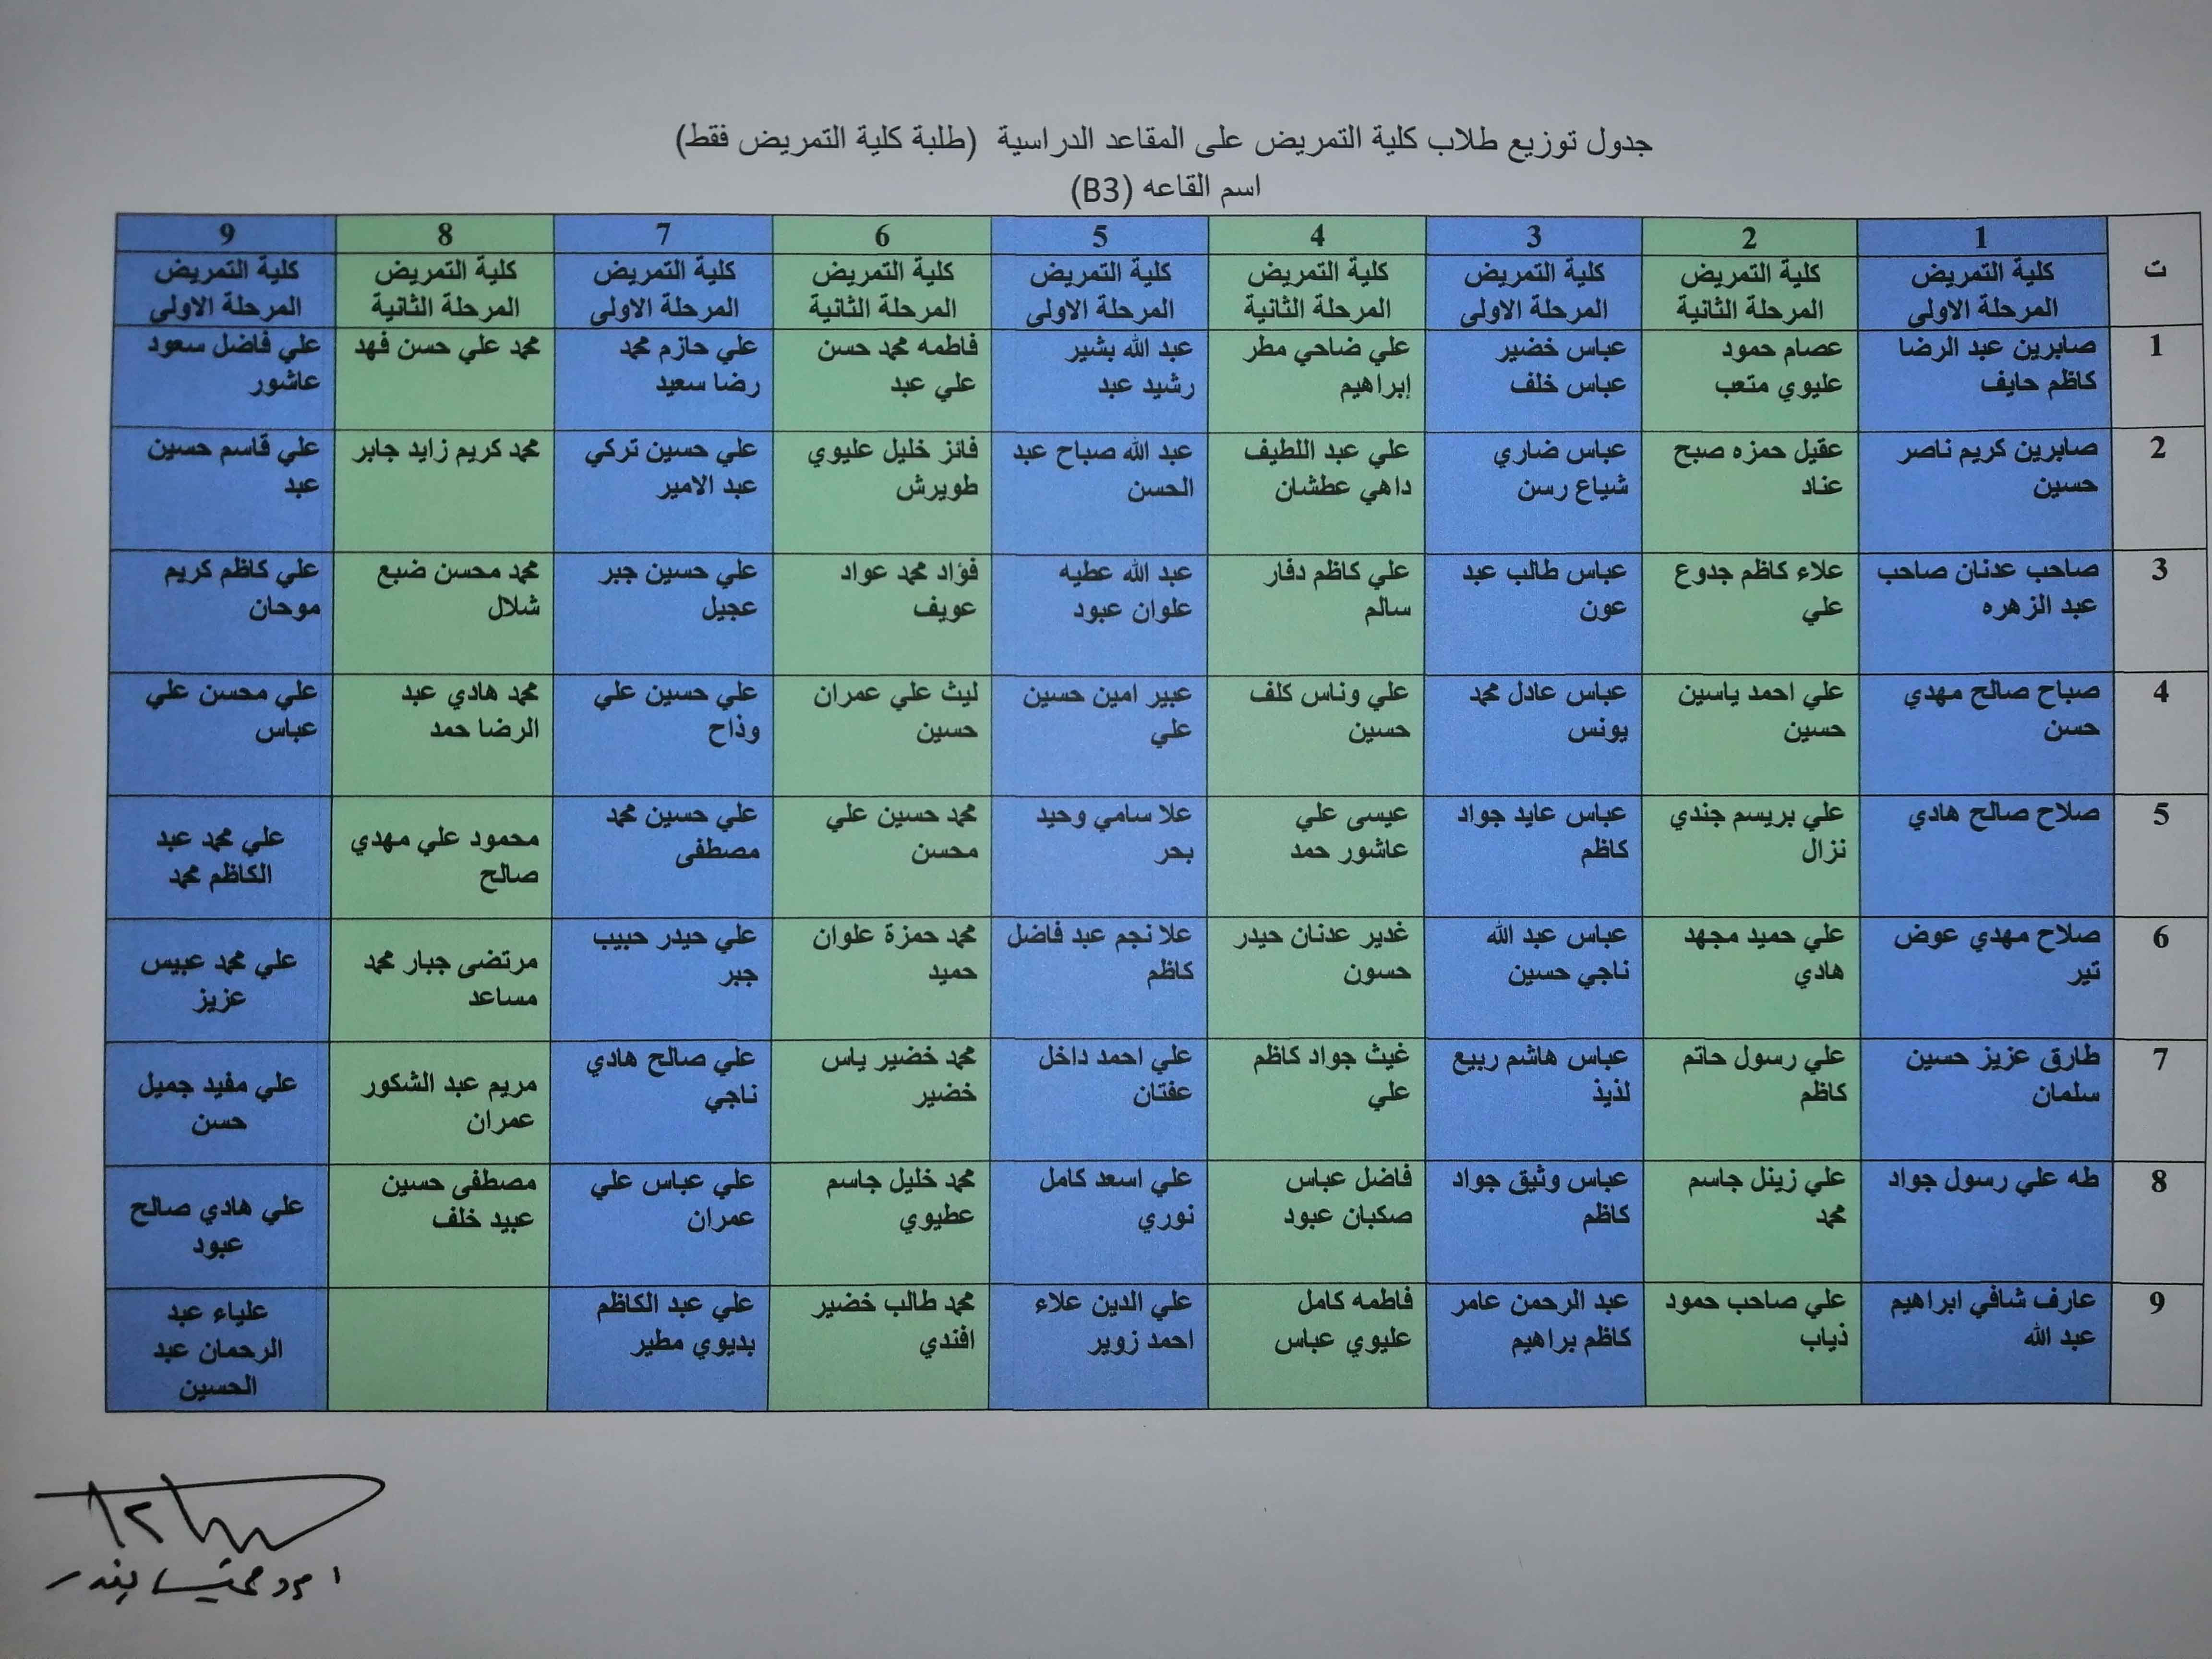 جدول توزيع طلاب كلية التمريض على المقاعد الدراسية (طلبة كلية التمريض فقط)
اسم القاعه (B3)
ت 1 2 3 4 5 6 7 8 9
كلية التمريض كلية التمريض كلية التمريض كلية التمريض كلية التمريض كلية التمريض كلية التمريض كلية التمريض كلية التمريض
المرحلة الاولى المرحلة الثانية المرحلة الاولى المرحلة الثانية المرحلة الاولى المرحلة الثانية المرحلة الاولى المرحلة الثانية المرحلة الاولى
1
صابرين عبد الرضا
كاظم حايف
عصام حمود
عليوي متعب
عباس خضير
عباس خلف
علي ضاحي مطر
إبراهيم
عبد الله بشير
رشيد عبد
فاطمه محمد حسن
علي عبد
علي حازم محمد
رضا سعيد
محمد علي حسن فهد
علي فاضل سعود
عاشور
2
صابرين كريم ناصر
حسين
عقيل حمزه صبح
عناد
عباس ضاري
شياع رسن
علي عبد اللطيف
داهي عطشان
عبد الله صباح عبد
الحسن
فائز خليل عليوي
طويرش
علي حسين تركي
عبد الامير
محمد كريم زايد جابر
علي قاسم حسين
عبد
3
صاحب عدنان صاحب
عبد الزهره
علاء كاظم جدوع
علي
عباس طالب عبد
عون
علي كاظم دفار
سالم
عبد الله عطيه
علوان عبود
فؤاد محمد عواد
عويف
علي حسين جبر
عجيل
محمد محسن ضبع
شلال
علي كاظم كريم
موحان
4
صباح صالح مهدي
حسن
علي احمد ياسين
حسين
عباس عادل محمد
يونس
علي وناس كلف
حسين
عبير امين حسين
علي
ليث علي عمران
حسين
علي حسين علي
وذاح
محمد هادي عبد
الرضا حمد
علي محسن علي
عباس
5
صلاح صالح هادي
علي بريسم جندي
نزال
عباس عايد جواد
كاظم
عيسى علي
عاشور حمد
علا سامي وحيد
بحر
محمد حسين علي
محسن
علي حسين محمد
مصطفى
محمود علي مهدي
صالح
علي محمد عبد
الكاظم محمد
6
صلاح مهدي عوض
تير
علي حميد مجهد
هادي
عباس عبد الله
ناجي حسين
غدير عدنان حيدر
حسون
علا نجم عبد فاضل
كاظم
محمد حمزة علوان
حميد
علي حيدر حبيب
جبر
مرتضى جبار محمد
مساعد
علي محمد عبيس
عزيز
7
طارق عزيز حسين
سلمان
علي رسول حاتم
كاظم
عباس هاشم ربيع
لذيذ
غيث جواد كاظم
علي
علي احمد داخل
عفتان
محمد خضير ياس
خضير
علي صالح هادي
ناجي
مريم عبد الشكور
عمران
علي مفيد جميل
حسن
8
طه علي رسول جواد
علي زينل جاسم
محمد
عباس وثيق جواد
كاظم
فاضل عباس
صكبان عبود
علي اسعد كامل
نوري
محمد خليل جاسم
عطيوي
علي عباس علي
عمران
مصطفى حسين
عبيد خلف
علي هادي صالح
عبود
9
عارف شافي ابراهيم
عبد الله
علي صاحب حمود
ذياب
عبد الرحمن عامر
كاظم براهيم
فاطمه كامل
عليوي عباس
علي الدين علاء
احمد زوير
محمد طالب خضير
افندي
علي عبد الكاظم
بديوي مطير
علياء عبد
الرحمان عبد
الحسين